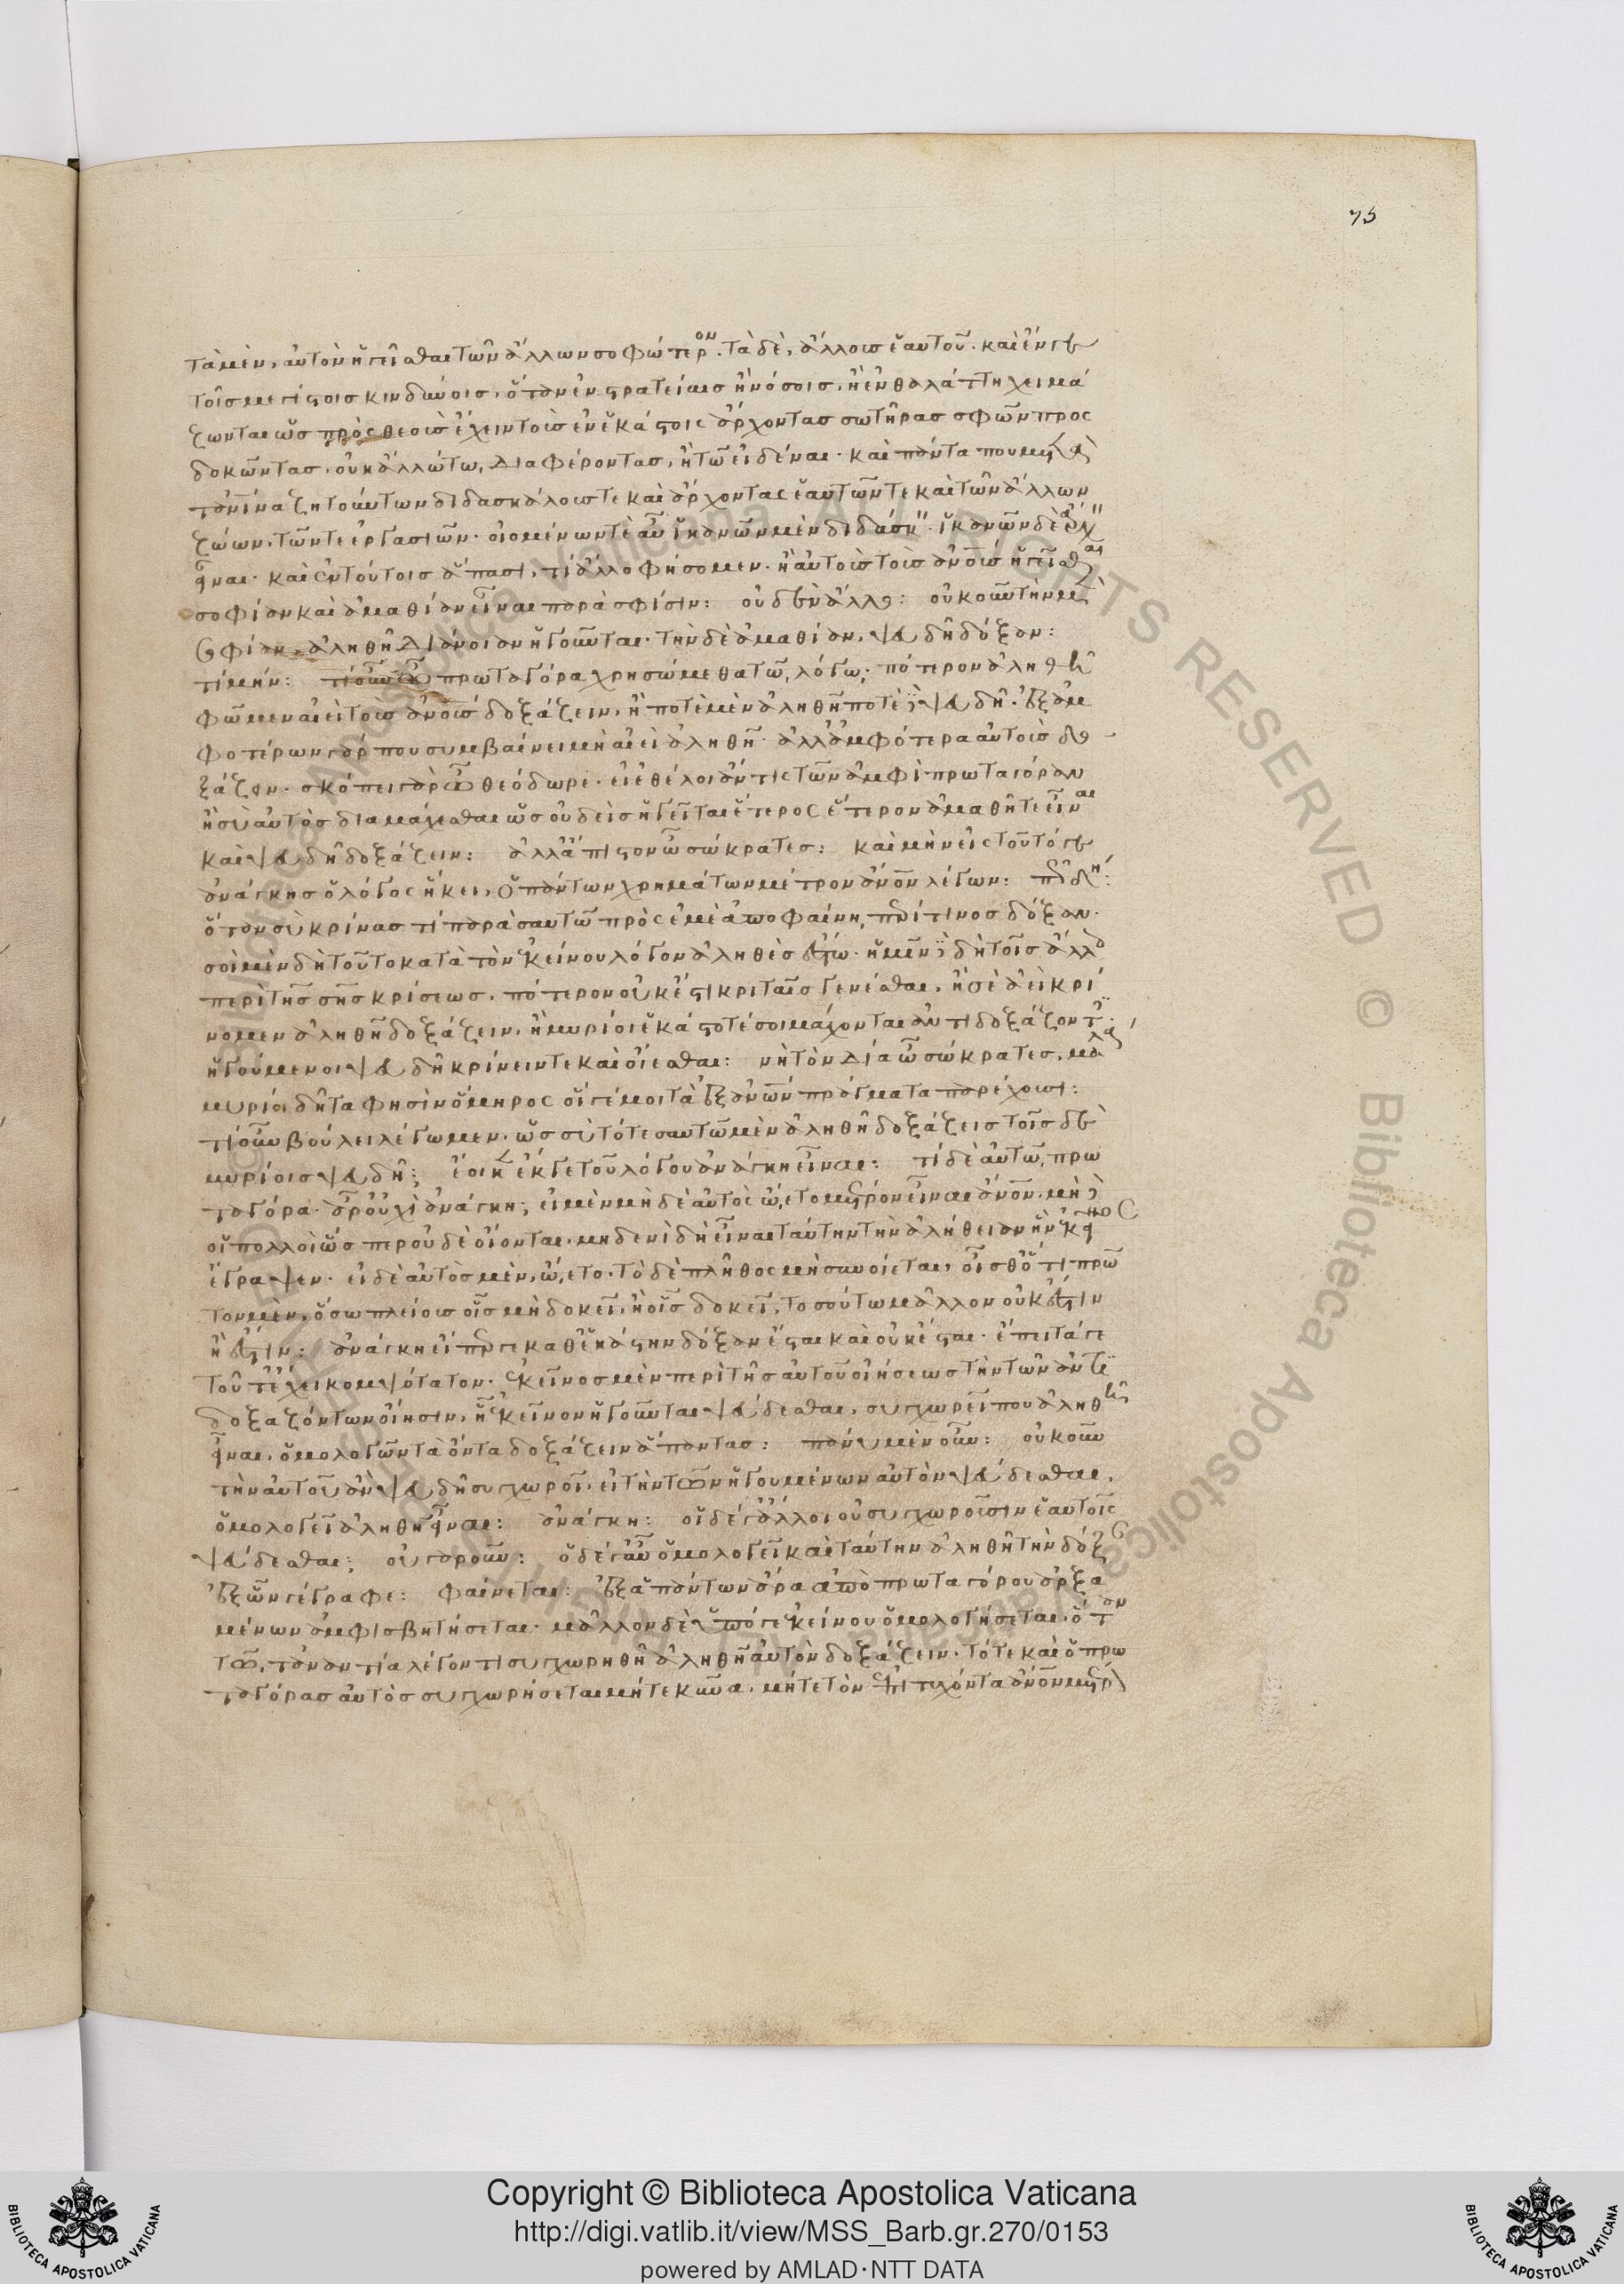 75
τὰ μὲν, αὐτὸν ἡγεῖσθαι τῶν ἄλλων σοφώτερον. τὰ δὲ, ἄλλους ἑαυτοῦ. καὶ ἔν γε
τοῖς μεγίστοις κινδύνοις, ὅταν ἐν στρατείαις ἢ νόσοις, ἢ ἐν θαλάττη χειμά
ζωνται ὥσπερ πρὸς θεοὺς ἔχειν τοὺς ἐν ἑκάστοις ἄρχοντας σωτῆρας σφῶν προς
δοκῶντας, οὐκ ἄλλω τω, διαφέροντας, ἢ τῶ εἰδέναι. καὶ πάντα που μεστὰ
τἀνθρώπινα ζητούντων διδασκάλους τε καὶ ἄρχοντας ἑαυτῶν τε καὶ τῶν ἄλλων
ζώων, τῶν τε ἐργασιῶν. οἰομένων τε αὖ ἱκανῶν μὲν διδάσκειν. ἱκανῶν δὲ ἄρχειν
εἶναι. καὶ ἐν τούτοις ἅπασι, τί ἄλλο φήσομεν. ἢ αὐτοὺς τοὺς ἀνθρώπους ἡγεῖσθαι
σοφίαν καὶ ἀμαθίαν εἶναι παρὰ σφίσιν: οὐδὲν ἄλλο: οὐκοῦν τὴν μὲν
σοφίαν, ἀληθῆ διάνοιαν ἡγοῦνται. τὴν δὲ ἀμαθίαν, ψευδῆ δόξαν:
τί μήν: τί οὖν ὦ πρωταγόρα χρησώμεθα τῶ λόγω; πότερον ἀληθῆ
φῶμεν ἀεὶ τοὺς ἀνθρώπους δοξάζειν, ἢ ποτὲ μὲν ἀληθῆ ποτὲ δὲ ψευδῆ. ἐξ ἀμ
φοτέρων γάρ που συμβαίνει μὴ ἀεὶ ἀληθῆ. ἀλλ᾽ ἀμφότερα αὐτοὺς δο
ξάζειν. σκόπει γὰρ ὦ θεόδωρε. εἰ ἐθέλοι ἄν τις τῶν ἀμφὶ πρωταγόραν
ἢ σὺ αὐτὸς διαμάχεσθαι ὡς οὐδεὶς ἡγεῖται ἕτερος ἕτερον ἀμαθῆ τε εἶναι
καὶ ψευδῆ δοξάζειν: ἀλλ᾽ ἄπιστον ὦ σώκρατες: καὶ μὴν εἰς τοῦτό γε
ἀνάγκης ὁ λόγος ἥκει, ὁ πάντων χρημάτων μέτρον ἄνθρωπον λέγων: πῶς δή:
ὅταν σὺ κρίνας τι παρὰ σαυτῶ πρὸς ἐμὲ ἀποφαίνη, περί τινος δόξαν.
σοὶ μὲν δὴ τοῦτο κατὰ τὸν ἐκείνου λόγον ἀληθὲς ἔστω. ἡμῖν δὲ δὴ τοῖς ἄλλοις
περὶ τῆς σῆς κρίσεως, πότερον οὐκ ἔστι κριταῖς γενέσθαι, ἢ σὲ ἀεὶ κρί
νομεν ἀληθῆ δοξάζειν, ἢ μυρίοι ἑκάστοτέ σοι μάχονται ἀντιδοξάζοντες.
ἡγούμενοι ψευδῆ κρίνειν τε καὶ οἴεσθαι: νὴ τὸν Δία ὦ σώκρατες, μάλα
μυρίοι δῆτα φησὶν ὅμηρος οἵ γέ μοι τὰ ἐξ ἀνθρώπων πράγματα παρέχουσι:
τί οὖν βούλει λέγωμεν. ὡς σὺ τότε σαυτῶ μὲν ἀληθῆ δοξάζεις τοῖς δὲ
μυρίοις ψευδῆ; ἔοικεν ἔκ γε τοῦ λόγου ἀνάγκη εἶναι: τί δὲ αὐτῶ πρω
ταγόρα. ἆρ᾽ οὐχὶ ἀνάγκη; εἰ μὲν μηδὲ αὐτὸς ᾤετο μέτρον εἶναι ἄνθρωπον. μὴ δὲ
οἱ πολλοὶ ὥσπερ οὐδὲ οἴονται. μηδενὶ δὴ εἶναι ταύτην τὴν ἀλήθειαν ἣν ἐκεῖνος
ἔγραψεν. εἰ δὲ αὐτὸς μὲν, ᾤετο. τὸ δὲ πλῆθος μὴ συνοίεται, οἶσθ᾽ ὅτι πρῶ
τον μὲν, ὅσω πλείοις οἷς μὴ δοκεῖ, ἢ οἷς δοκεῖ, τοσούτω μᾶλλον οὐκ ἔστιν
ἢ ἔστιν: ἀνάγκη εἴπερ γε καθ᾽ ἑκάστην δόξαν ἔσται καὶ οὐκ ἔσται. ἔπειτά γε
τοῦτ᾽ ἔχει κομψότατον. ἐκεῖνος μὲν περὶ τῆς αὐτοῦ οἰήσεως τὴν τῶν ἀντι
δοξαζόντων οἴησιν, ἧ ἐκεῖνον ἡγοῦνται ψεύδεσθαι, συγχωρεῖ που ἀληθῆ
εἶναι, ὁμολογῶν τὰ ὄντα δοξάζειν ἅπαντας: πάνυ μὲν οὖν: οὐκοῦν
τὴν αὐτοῦ ἂν ψευδῆ συγχωροῖ, εἰ τὴν τῶν ἡγουμένων αὐτὸν ψεύδεσθαι,
ὁμολογεῖ ἀληθῆ εἶναι: ἀνάγκη: οἱ δέ γ᾽ ἄλλοι οὐ συγχωροῦσιν ἑαυτοῖς
ψεύδεσθαι; οὐ γὰρ οὖν: ὁ δέ γ᾽ αὖ ὁμολογεῖ καὶ ταύτην ἀληθῆ τὴν δόξαν
ἐξ ὧν γέγραφε: φαίνεται: ἐξ ἁπάντων ἄρα ἀπὸ πρωταγόρου ἀρξα
μένων ἀμφισβητήσεται. μᾶλλον δὲ ὑπό γε ἐκείνου ὁμολογήσεται. ὅταν
τῶ, τἀναντία λέγοντι συγχωρῆ ἀληθῆ αὐτὸν δοξάζειν. τότε καὶ ὁ πρω
ταγόρας αὐτὸς συγχωρήσεται μήτε κύνα, μήτε τὸν ἐπιτυχόντα ἄνθρωπον μέτρον
Copyright © Biblioteca Apostolica Vaticana
http://digi.vatlib.it/view/MSS_Barb.gr.270/0153
powered by AMLAD·NTT DATA